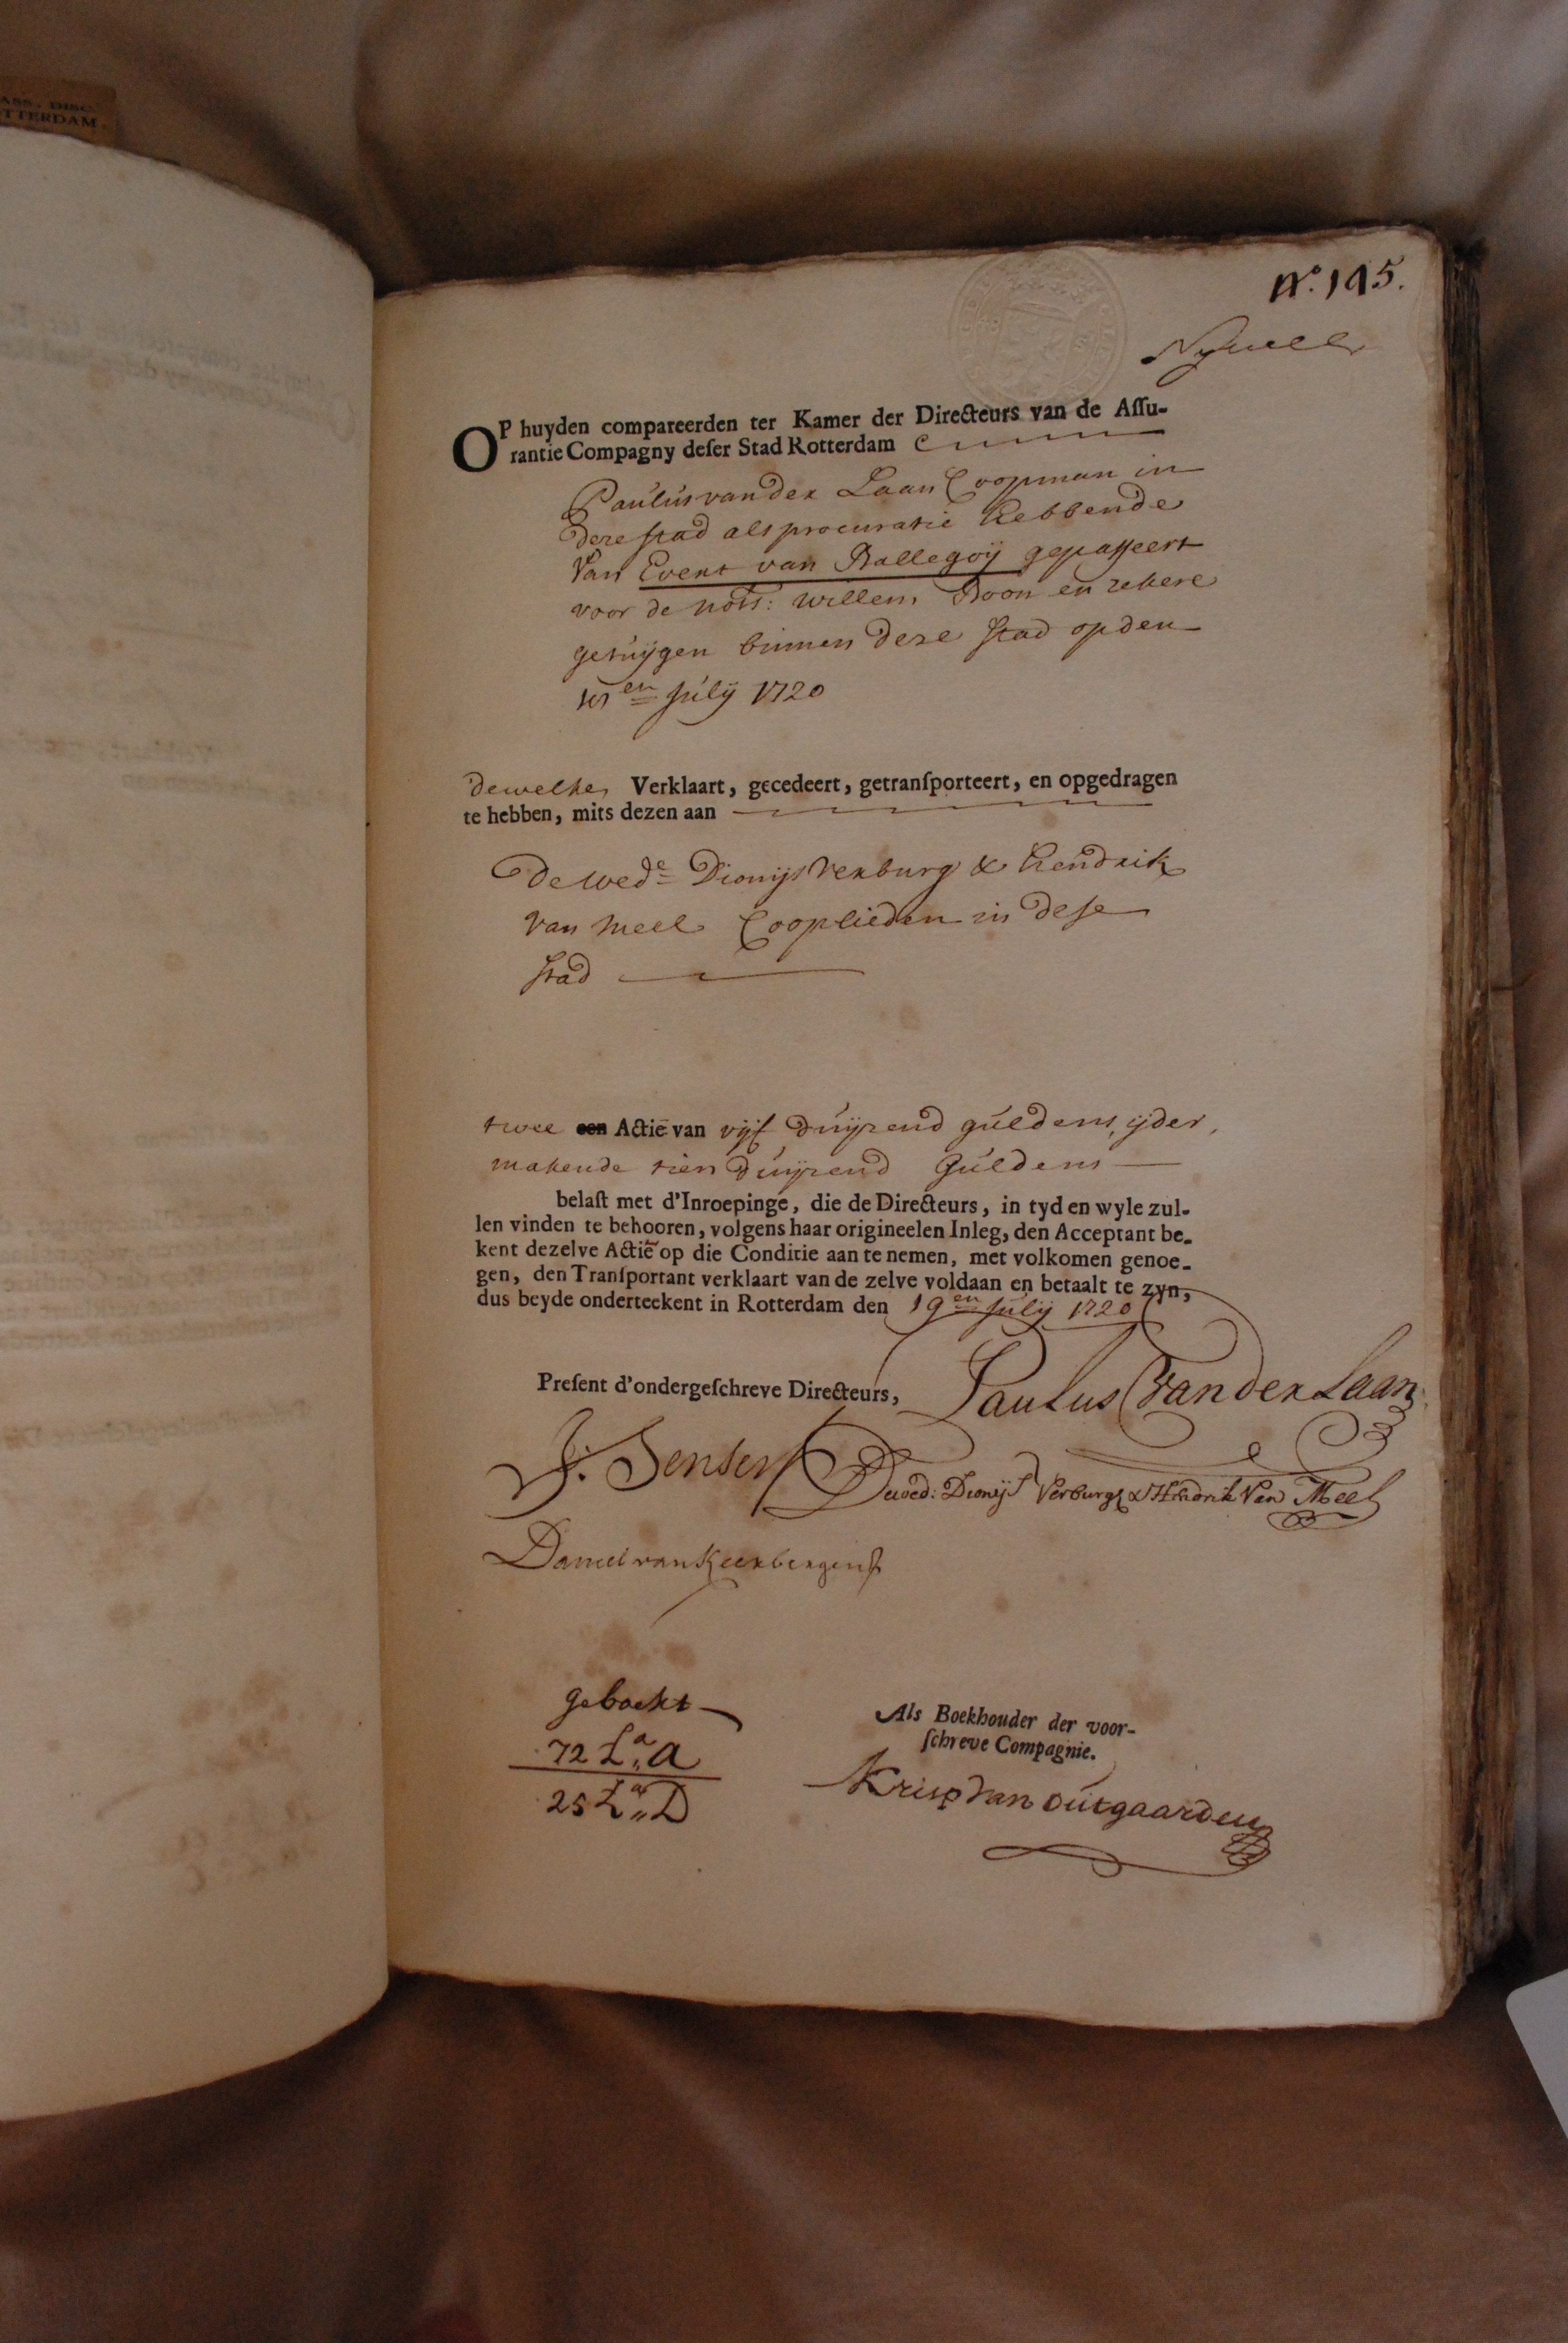 ASS. DISC.
TTERDAM.
No. 195.
OP huyden compareerden ter Kamer der Directeurs van de Assu-
rantie Compagny deser Stad Rotterdam
Paulus vander Laan Coopman in
deze stad als procuratie hebbende
van Evert van Ballegoij gepasseert
voor de nots: willem Roon en zekere
getuijgen binnen deze stad op den
en July 1720
dewelke Verklaart, gecedeert, getransporteert, en opgedragen
te hebben, mits dezen aan
De wede Dionijs Verburg & Hendrik
van Meel Cooplieden in dese
stad
twee een Actie van vijf duijzend guldens, ijder,
makende tien duijzend Guldens
belast met d'Inroepinge, die de Directeurs, in tyd en wyle zul-
len vinden te behooren, volgens haar origineelen Inleg, den Acceptant be-
kent dezelve Actie op die Conditie aan te nemen, met volkomen genoe-
gen, den Transportant verklaart van de zelve voldaan en betaalt te zyn,
dus beyde onderteekent in Rotterdam den 19en July 1720
Present d'ondergeschreve Directeurs, Paulus Van der Laan
J. Senserf De wed: Dionijs Verburg & Hendrik Van Meel
Daniel van Keerbergen
geboekt
72 La, A
25 La,, D
Als Boekhouder der voor-
schreve Compagnie.
Krisp Van outgaarden